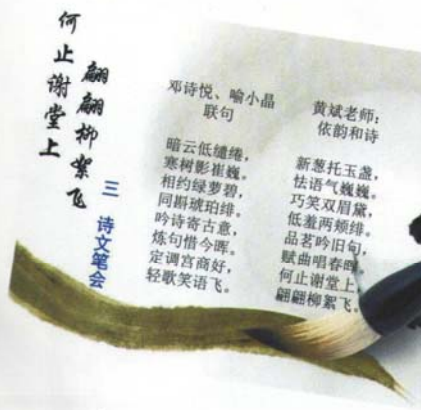 何止谢堂上
翩翩柳絮飞
三 诗文笔会
邓诗悦、喻小晶
联句
暗云低缱绻，
寒树影崔巍。
相约绿萝碧，
同斟琥珀绯。
吟诗寄古意，
炼句惜今晖。
定调宫商好，
轻歌笑语飞。
黄斌老师：
依韵和诗
新葱托玉盏，
怯语气巍巍。
巧笑双眉黛，
低羞两颊绯。
品茗吟旧句，
赋曲唱春晖。
何止谢堂上，
翩翩柳絮飞。